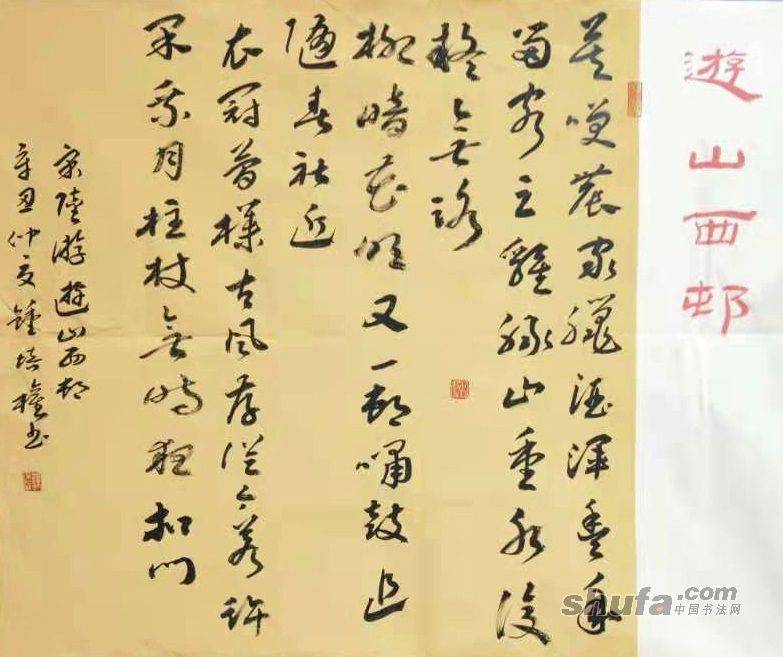 遊山西邨
莫笑農家臘酒渾豐年
留客足雞豚山重水復
疑無路
柳暗花明又一邨嘯鼓追
隨春社近
衣冠簡樸古風存從今若許
閑乘月柱杖無時夜扣門
宋陸游遊山西邨
辛丑仲夏鍾培權书
shufa.com
中国书法网